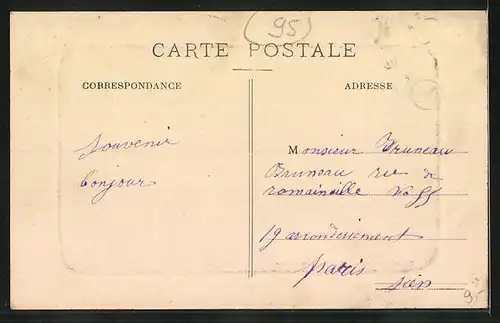 (95)
CARTE POSTALE
CORRESPONDANCE
ADRESSE
Souvenir
bonjour
Monsieur Bruneau
Bruneau rue de
romainville
19 arrondissement
paris
9.-